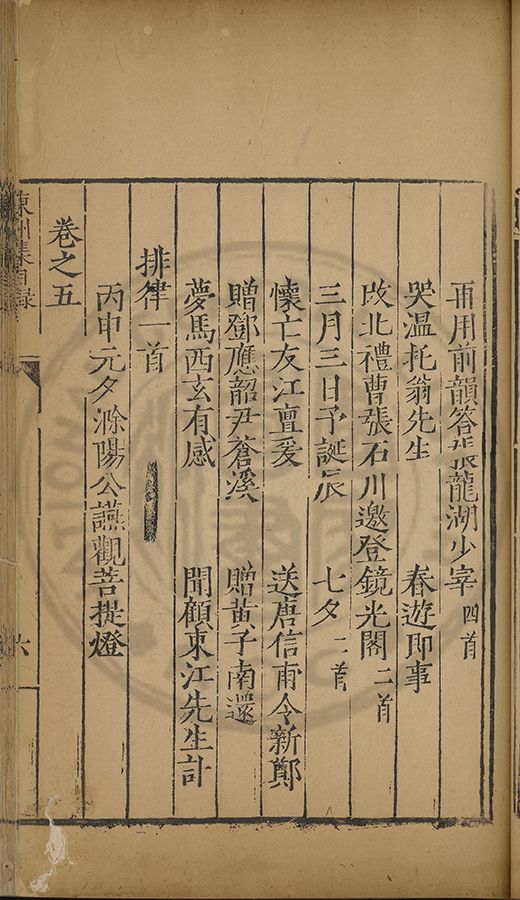 再用前韻答張龍湖少宰四首
哭温托翁先生　春遊即事
改北禮曹張石川邀登鏡光閣二首
三月三日予誕辰　七夕二首
懷亡友江亶爰　送唐信甫令新鄭
贈鄧應韶尹蒼溪　贈黃子南還
夢馬西玄有感　聞顧東江先生訃
排律一首
丙申元夕滁陽公讌觀菩提燈
卷之五
東洲集目錄
六